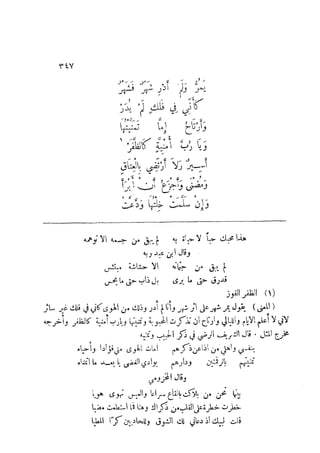 ٣٤٧
يَمُرُّ وَلَمْ أَدْرِ شَهْرٌ فَشَهْرْ
كَأَنِّيَ فِي فَلَكٍ لَمْ يُدَرْ
وَأَرْتَاحُ إِمَّا تَمَنَّيْتُهَا
وَيَا رُبَّ أُمْنِيَّةٍ كَالظَّفَرْ ١
أَسِيرُ
وَإِنْ سَلِمَتْ
هذا محبك حباً لا حياة به لم يبق من جسمه الا توهمه
وقال ابن عبد ربه
لم يبق من جثمانه الا حشاشة مبتئس
قد رق حتى ما يرى بل ذاب حتى ما يحس
(١) الظفر الفوز
(المعنى) يقول يمر شهر على اثر شهر وأنا لم أدر وذلك من الهوى كأني في فلك غير سائر
لاني لا أعلم الايام والليالي وارتاح ان تذكرت المحبوبة وتمنيتها ويارب أمنية كالظفر وأخرجه
مخرج المثل . قال الشريف الرضي في ذكر الحبيب وتمنيه
بنفسي وأهلي من اذا عن ذكرهم أمات الهوى مني فؤادا وأحياه
تمنيتهم بالرقمتين ودارهم بوادي الغضى يا بعد ما أتمناه
وقال المخزومي
بينما نحن من بلاكث بالقاع سراعا والعيس تهوى هويا
خطرت خطرة على القلب من ذكراك وهنا فما استطعت مضيا
قلت لبيك اذ دعاني لك الشوق وللحاديين كرّا المطيا